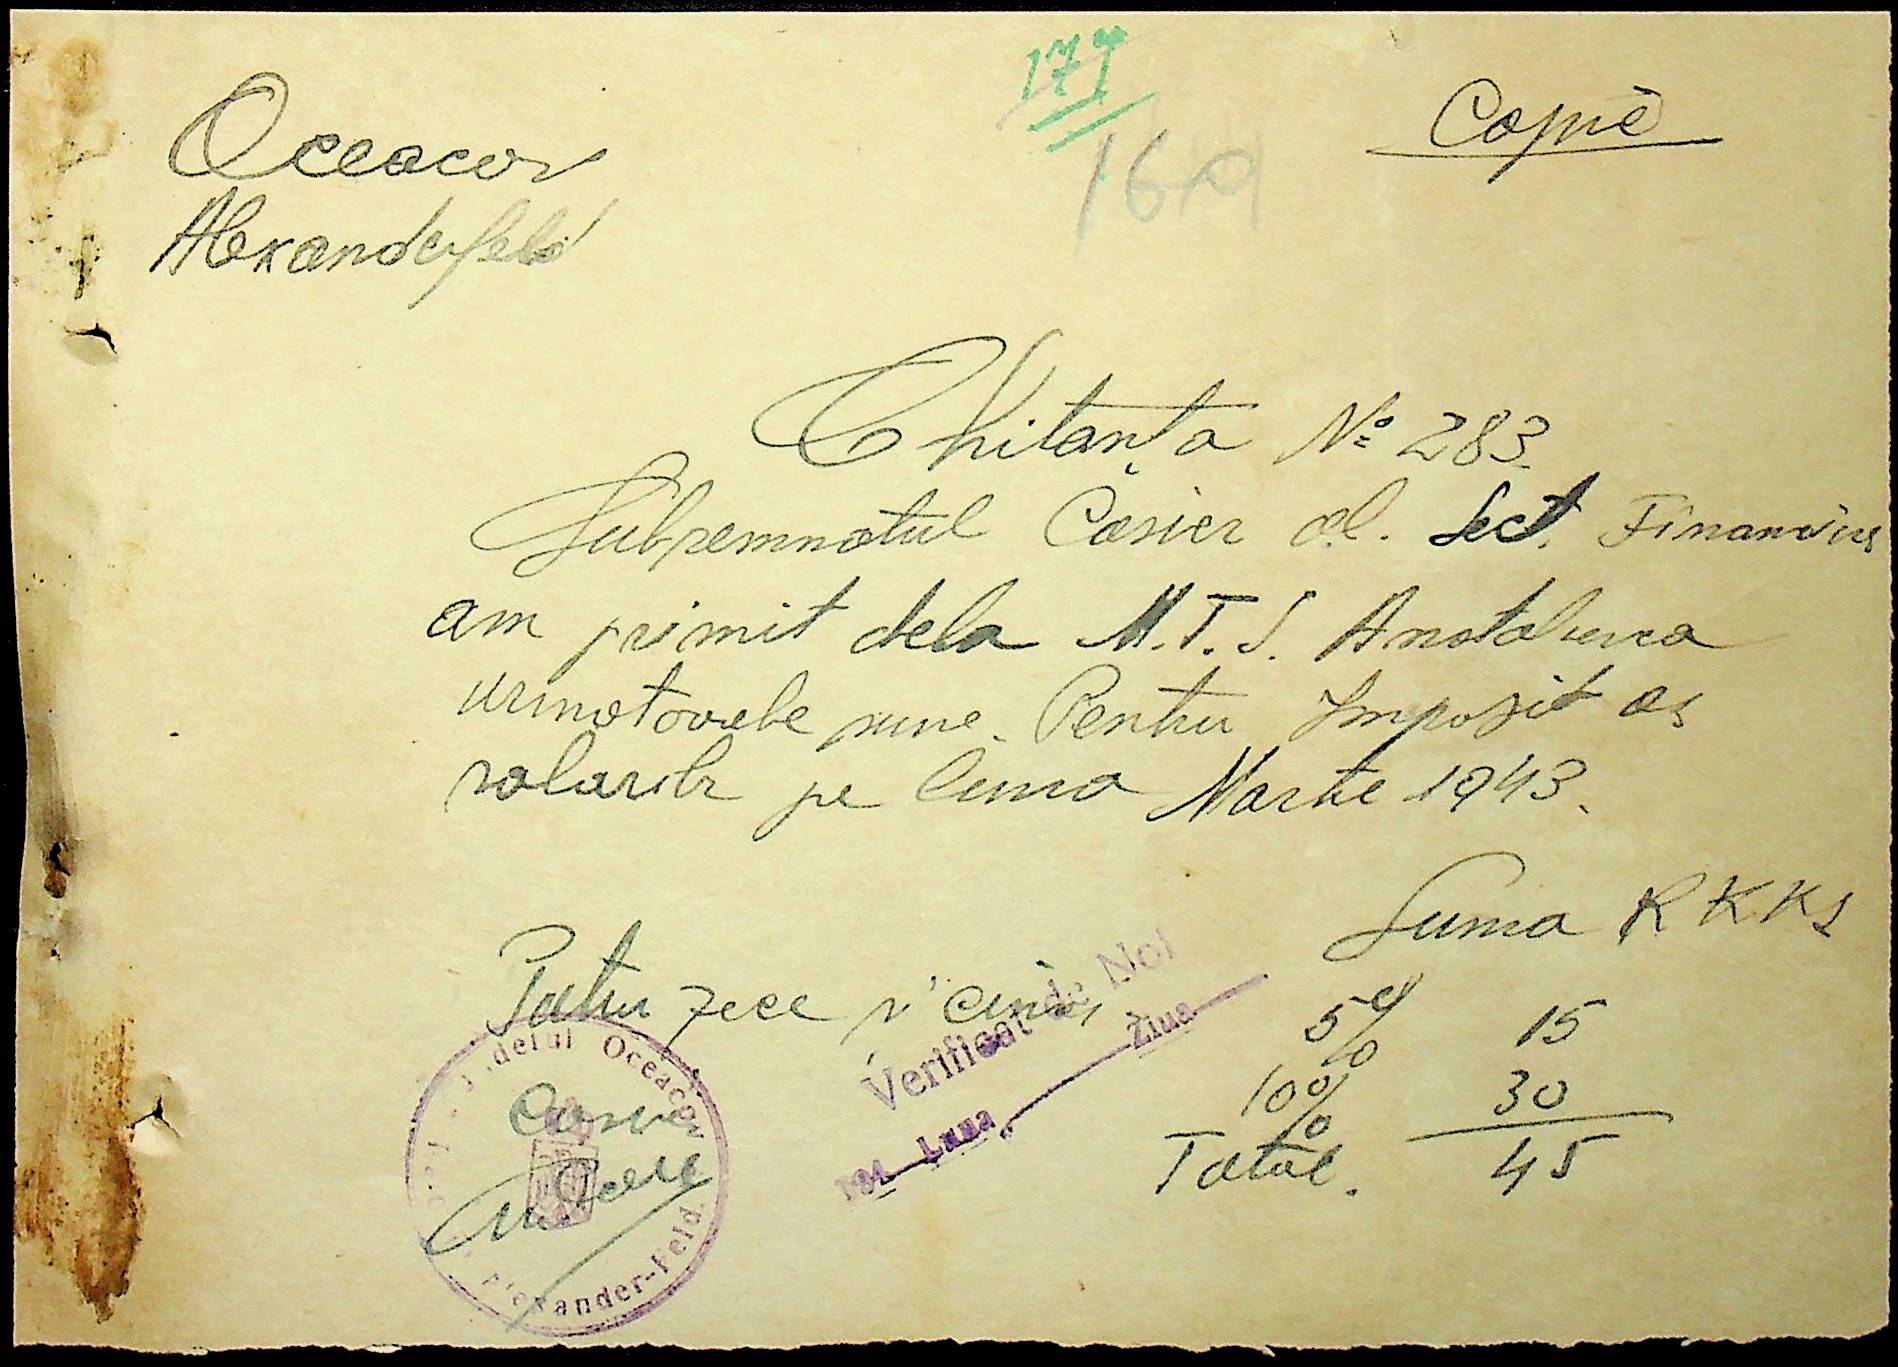 174
Copie
169
Oceacov
Alexanderfeld
Chitanța № 283.
Subsemnatul Casier al. Sect. Financiar
am primit dela M.T.S. Anatolievca
urmatoarele sume. Pentru Imposit as
salariilor pe luna Martie 1943.
Suma RKKS
Patru zece și cinci
5% 15
10% 30
Total. 45
Verificat de Noi
194 Luna Ziua
Casier
Oceacov
Alexander-Feld